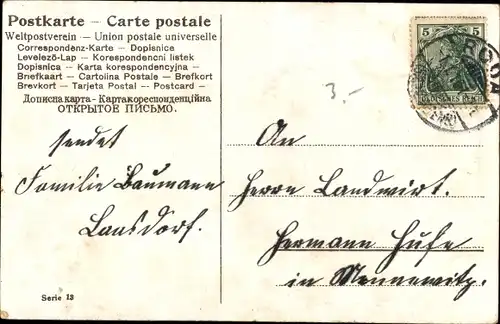 Postkarte – Carte postale
Weltpostverein – Union postale universelle
Correspondenz-Karte – Dopisnice
Levelező-Lap – Korespondencni listek
Dopisnica – Karta korespondencyjna –
Briefkaart – Cartolina Postale – Brefkort
Brevkort – Tarjeta Postal – Postcard –
Дописна карта – Картакореспонденційна
ОТКРЫТОЕ ПИСЬМО.
3.-
5 5
DEUTSCHES REICH
RODA
sendet
Familie Baumann
Lausdorf.
An
Herrn Landwirt.
Hermann Hufe
in Mennewitz.
Serie 13